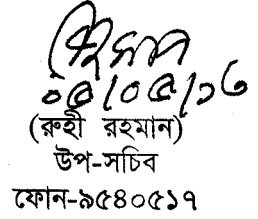 ০৫/০৫/১৩
(রুহী রহমান)
উপ-সচিব
ফোন-৯৫৪০৫১৭